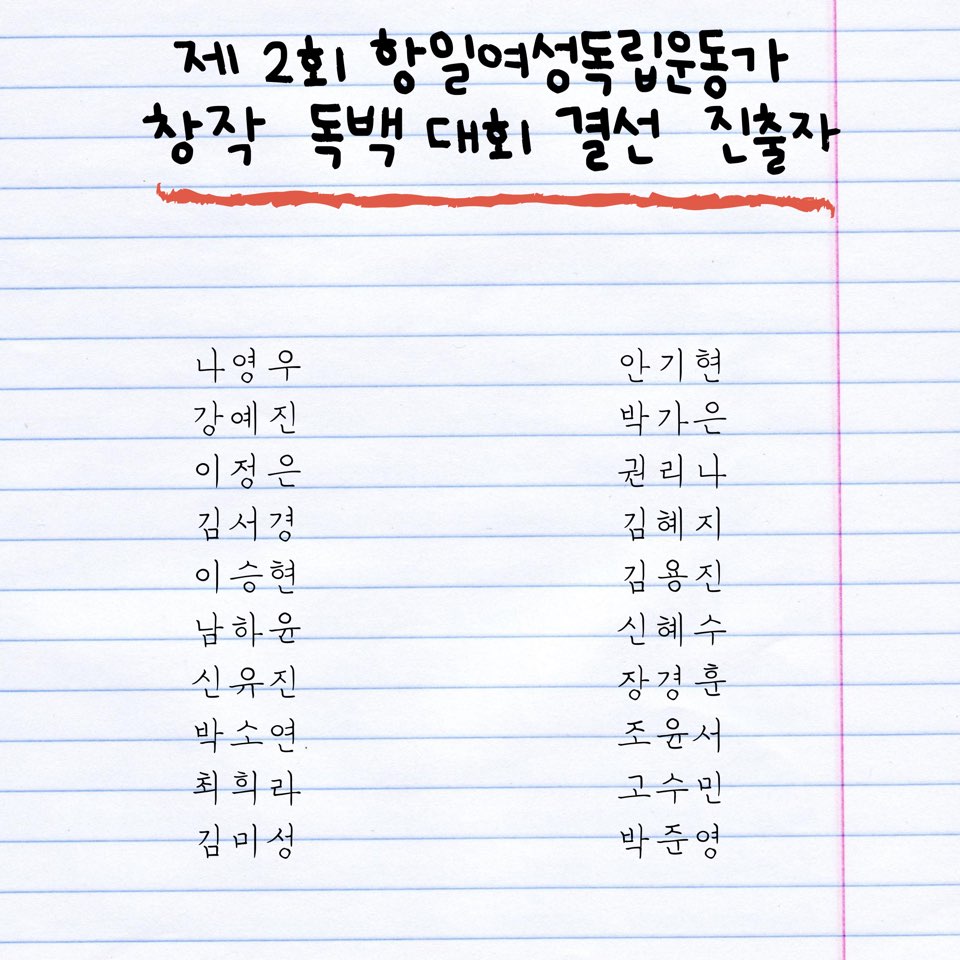 제 2회 항일여성독립운동가
창작 독백 대회 결선 진출자
나영우 안기현
강예진 박가은
이정은 권리나
김서경 김혜지
이승현 김용진
남하윤 신혜수
신유진 장경훈
박소연 조윤서
최희라 고수민
김미성 박준영